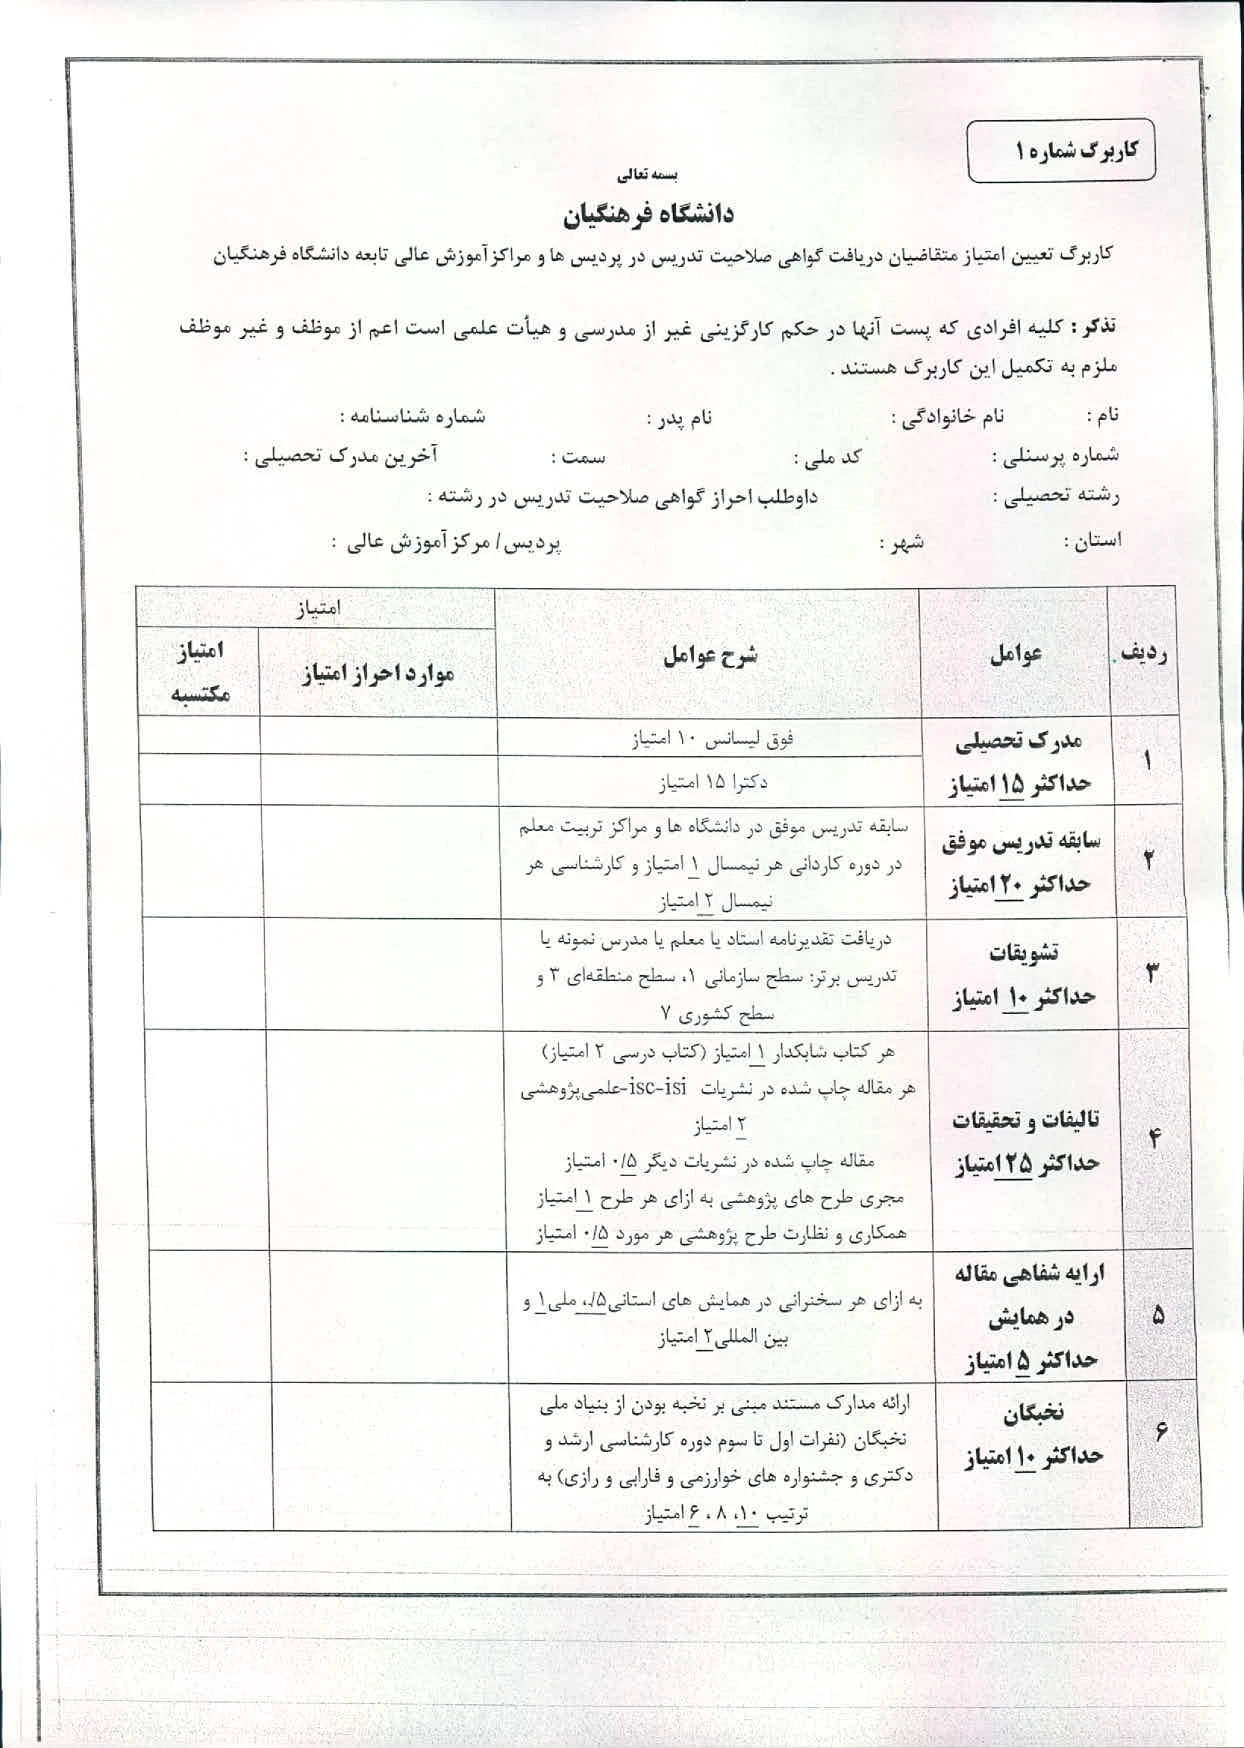 کاربرگ شماره ۱
بسمه تعالی
دانشگاه فرهنگیان
کاربرگ تعیین امتیاز متقاضیان دریافت گواهی صلاحیت تدریس در پردیس ها و مراکز آموزش عالی تابعه دانشگاه فرهنگیان
تذکر : کلیه افرادی که پست آنها در حکم کارگزینی غیر از مدرسی و هیأت علمی است اعم از موظف و غیر موظف
ملزم به تکمیل این کاربرگ هستند .
نام : نام خانوادگی : نام پدر : شماره شناسنامه :
شماره پرسنلی : کد ملی : سمت : آخرین مدرک تحصیلی :
رشته تحصیلی : داوطلب احراز گواهی صلاحیت تدریس در رشته :
استان : شهر : پردیس/ مرکز آموزش عالی :
ردیف عوامل شرح عوامل امتیاز
موارد احراز امتیاز
امتیاز
مکتسبه
۱
مدرک تحصیلی
حداکثر ۱۵ امتیاز
فوق لیسانس ۱۰ امتیاز
دکترا ۱۵ امتیاز
۲
سابقه تدریس موفق
حداکثر ۲۰ امتیاز
سابقه تدریس موفق در دانشگاه ها و مراکز تربیت معلم
در دوره کاردانی هر نیمسال ۱ امتیاز و کارشناسی هر
نیمسال ۲ امتیاز
۳
تشویقات
حداکثر ۱۰ امتیاز
دریافت تقدیرنامه استاد یا معلم یا مدرس نمونه یا
تدریس برتر: سطح سازمانی ۱، سطح منطقه‌ای ۳ و
سطح کشوری ۷
۴
تالیفات و تحقیقات
حداکثر ۲۵ امتیاز
هر کتاب شابکدار ۱ امتیاز (کتاب درسی ۲ امتیاز)
هر مقاله چاپ شده در نشریات isc-isi-علمی‌پژوهشی
۲ امتیاز
مقاله چاپ شده در نشریات دیگر ۰/۵ امتیاز
مجری طرح های پژوهشی به ازای هر طرح ۱ امتیاز
همکاری و نظارت طرح پژوهشی هر مورد ۰/۵ امتیاز
۵
ارایه شفاهی مقاله
در همایش
حداکثر ۵ امتیاز
به ازای هر سخنرانی در همایش های استانی ۰/۵، ملی ۱ و
بین المللی ۲ امتیاز
۶
نخبگان
حداکثر ۱۰ امتیاز
ارائه مدارک مستند مبنی بر نخبه بودن از بنیاد ملی
نخبگان (نفرات اول تا سوم دوره کارشناسی ارشد و
دکتری و جشنواره های خوارزمی و فارابی و رازی) به
ترتیب ۱۰، ۸، ۶ امتیاز